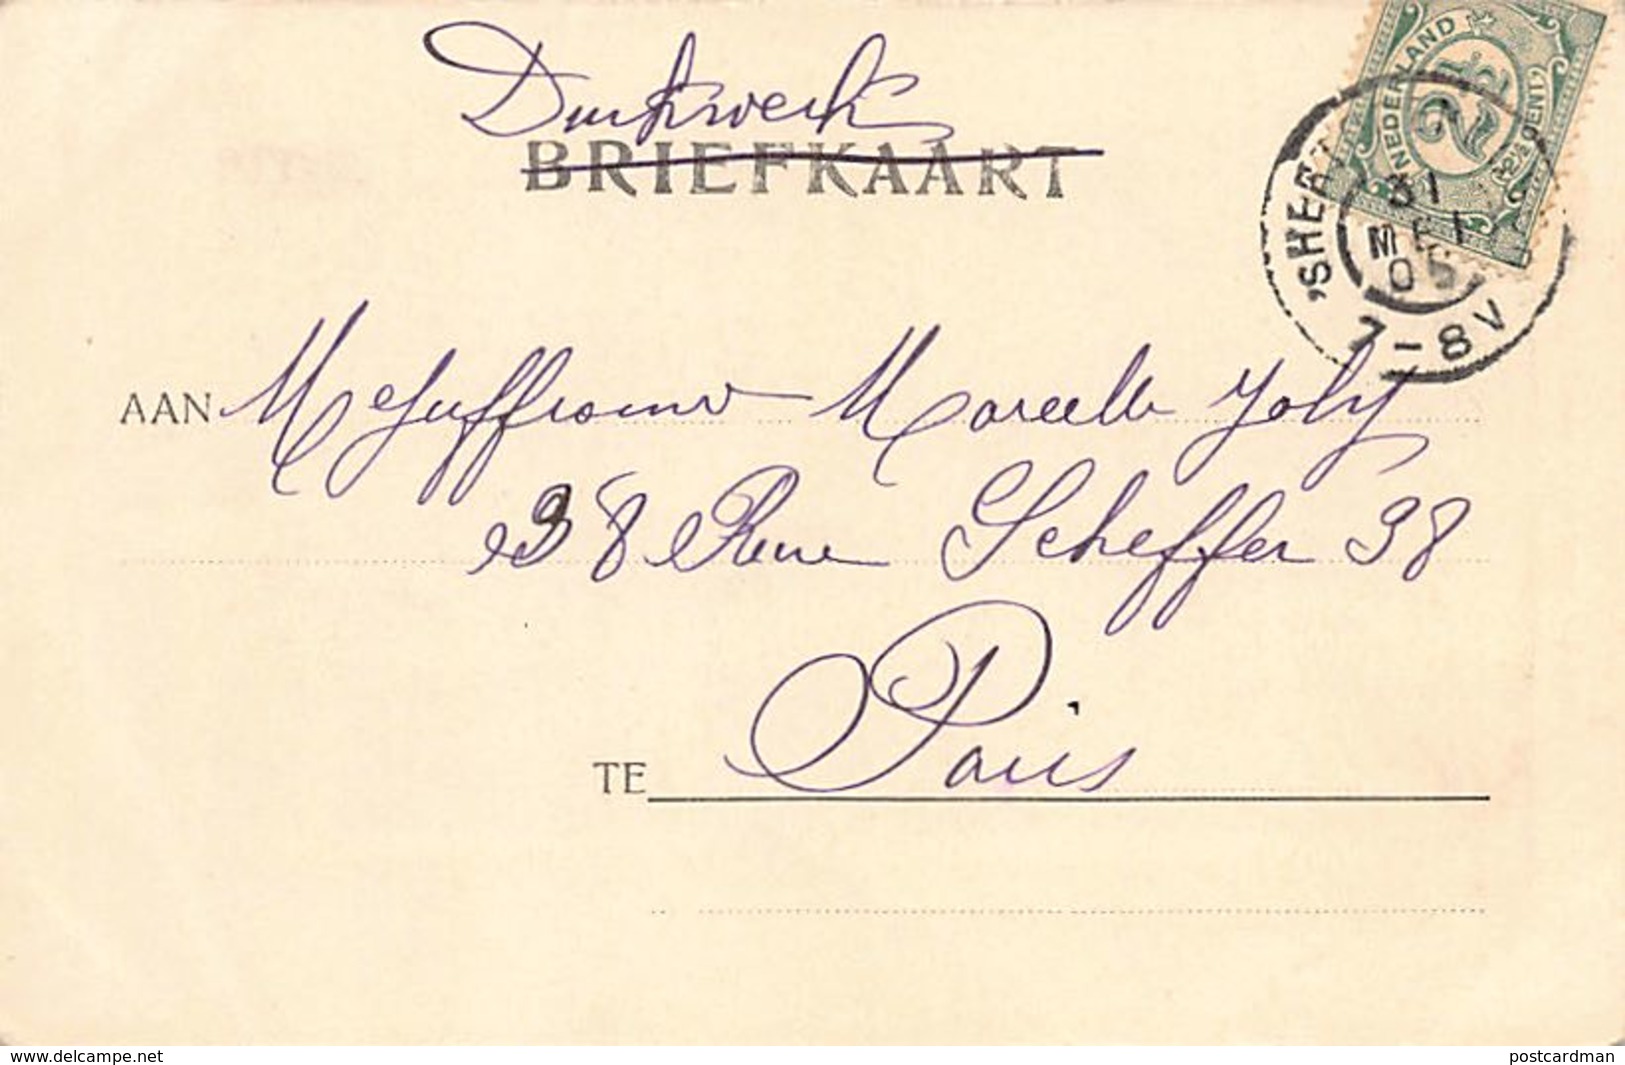 Drukwerk
BRIEFKAART
NEDERLAND
2½
2½ CENT
'SHER
31
MEI
05
7-8V
AAN Mejuffrouw Marcelle Joly
38 Rue Scheffer 38
TE Paris
www.delcampe.net
postcardman